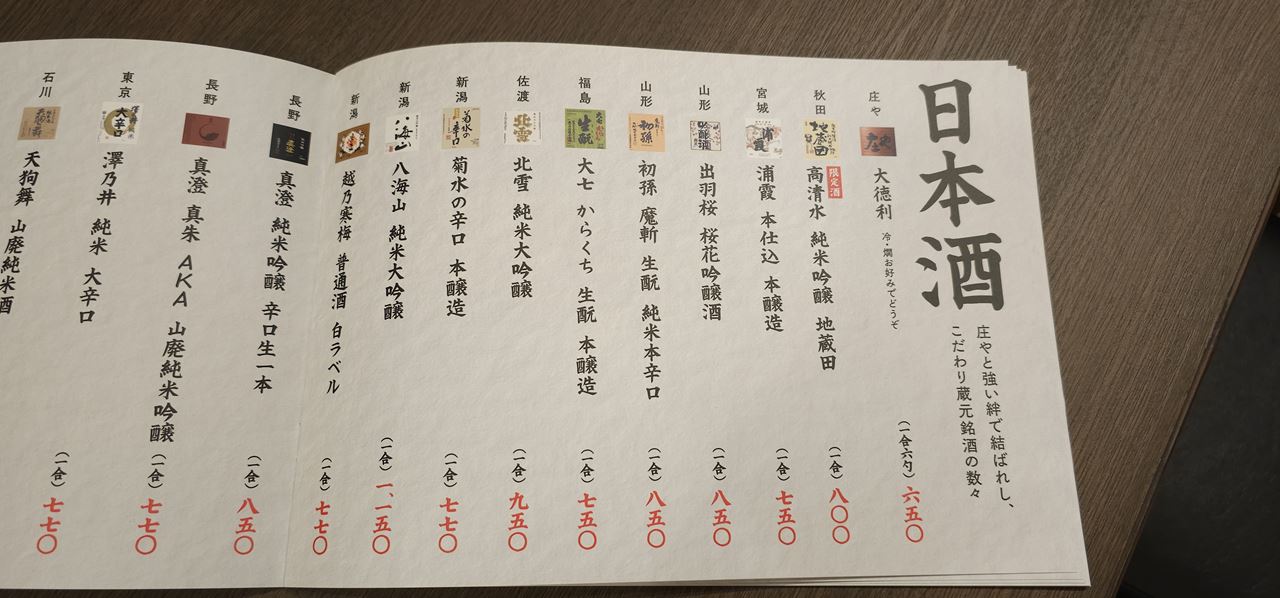 日本酒
庄やと強い絆で結ばれし、
こだわり蔵元銘酒の数々
庄や
大徳利 冷・燗お好みでどうぞ
(一合六勺) 六五〇
秋田
地蔵田
限定酒
高清水 純米吟醸 地蔵田
(一合) 八〇〇
宮城
浦霞
浦霞 本仕込 本醸造
(一合) 七五〇
山形
吟醸酒
出羽桜 桜花吟醸酒
(一合) 八五〇
山形
初孫
初孫 魔斬 生酛 純米本辛口
(一合) 八五〇
福島
生酛
大七 からくち 生酛 本醸造
(一合) 七五〇
佐渡
北雪
北雪 純米大吟醸
(一合) 九五〇
新潟
菊水の辛口
菊水の辛口 本醸造
(一合) 七七〇
新潟
八海山
八海山 純米大吟醸
(一合) 一、一五〇
新潟
越乃寒梅 普通酒 白ラベル
(一合) 七七〇
長野
真澄
真澄 純米吟醸 辛口生一本
(一合) 八五〇
長野
真澄 真朱 AKA 山廃純米吟醸
(一合) 七七〇
東京
大辛口
澤乃井 純米 大辛口
石川
天狗舞
天狗舞 山廃純米酒
(一合) 七七〇